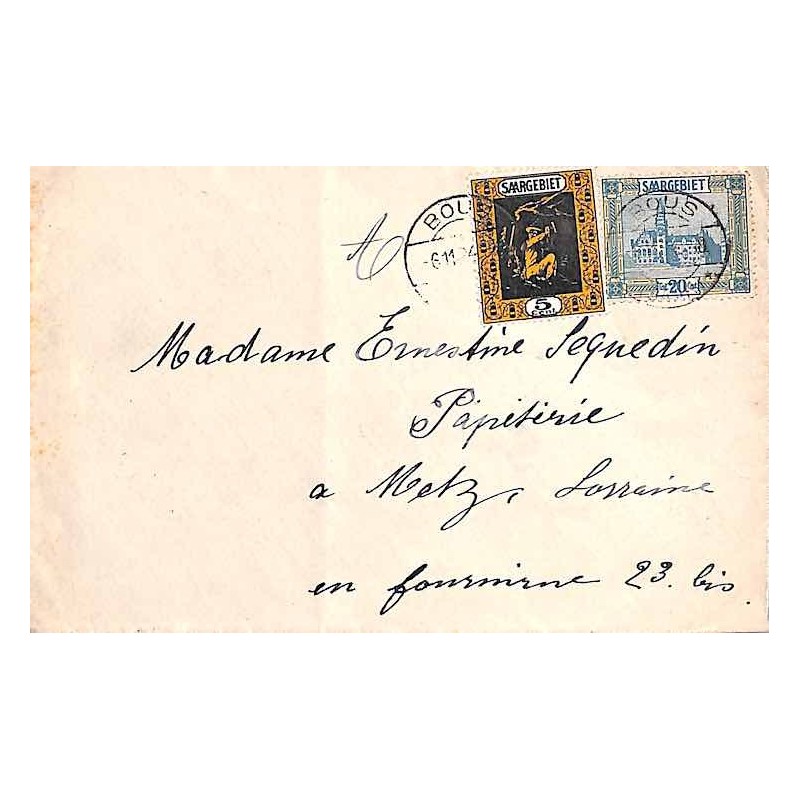 SAARGEBIET
5
Cent.
SAARGEBIET
20
BOUS
BOUS
6.11.24
Madame Ernestine Sequedin
Papeterie
a Metz, Lorraine
en fournirue 23. bis.